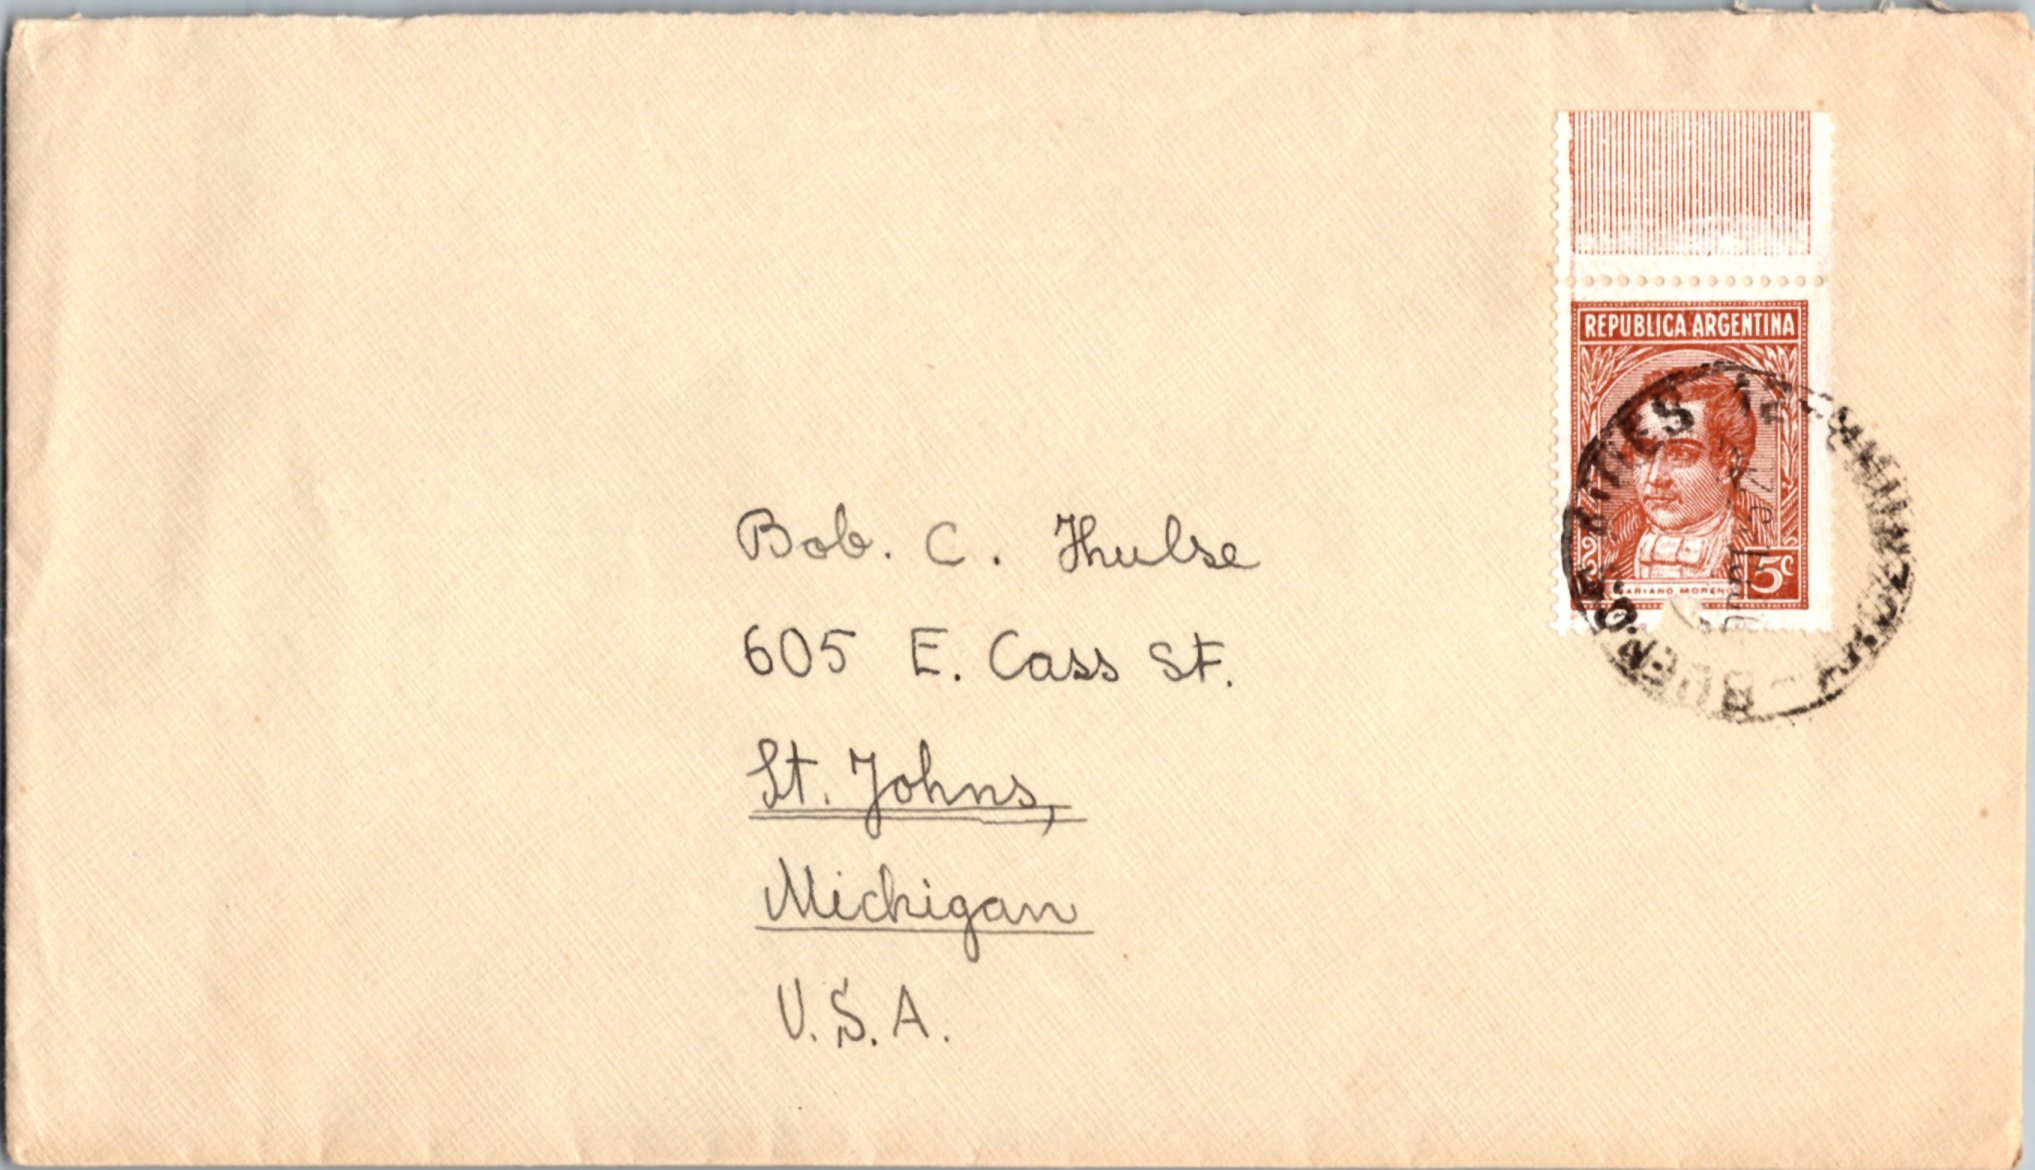 REPUBLICA ARGENTINA
5c
MARIANO MORENO
Bob. C. Hulse
605 E. Cass St.
St. Johns,
Michigan
U.S.A.